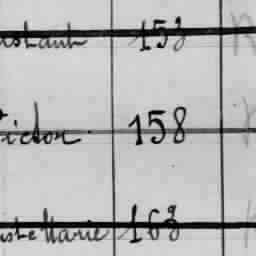 istant 153
Victor 158
iste Marie 163